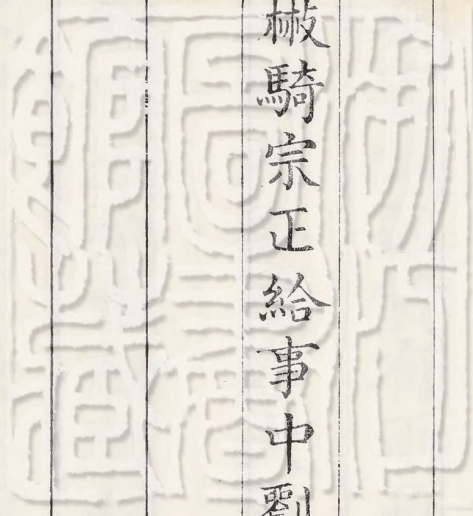 散騎宗正給事中劉